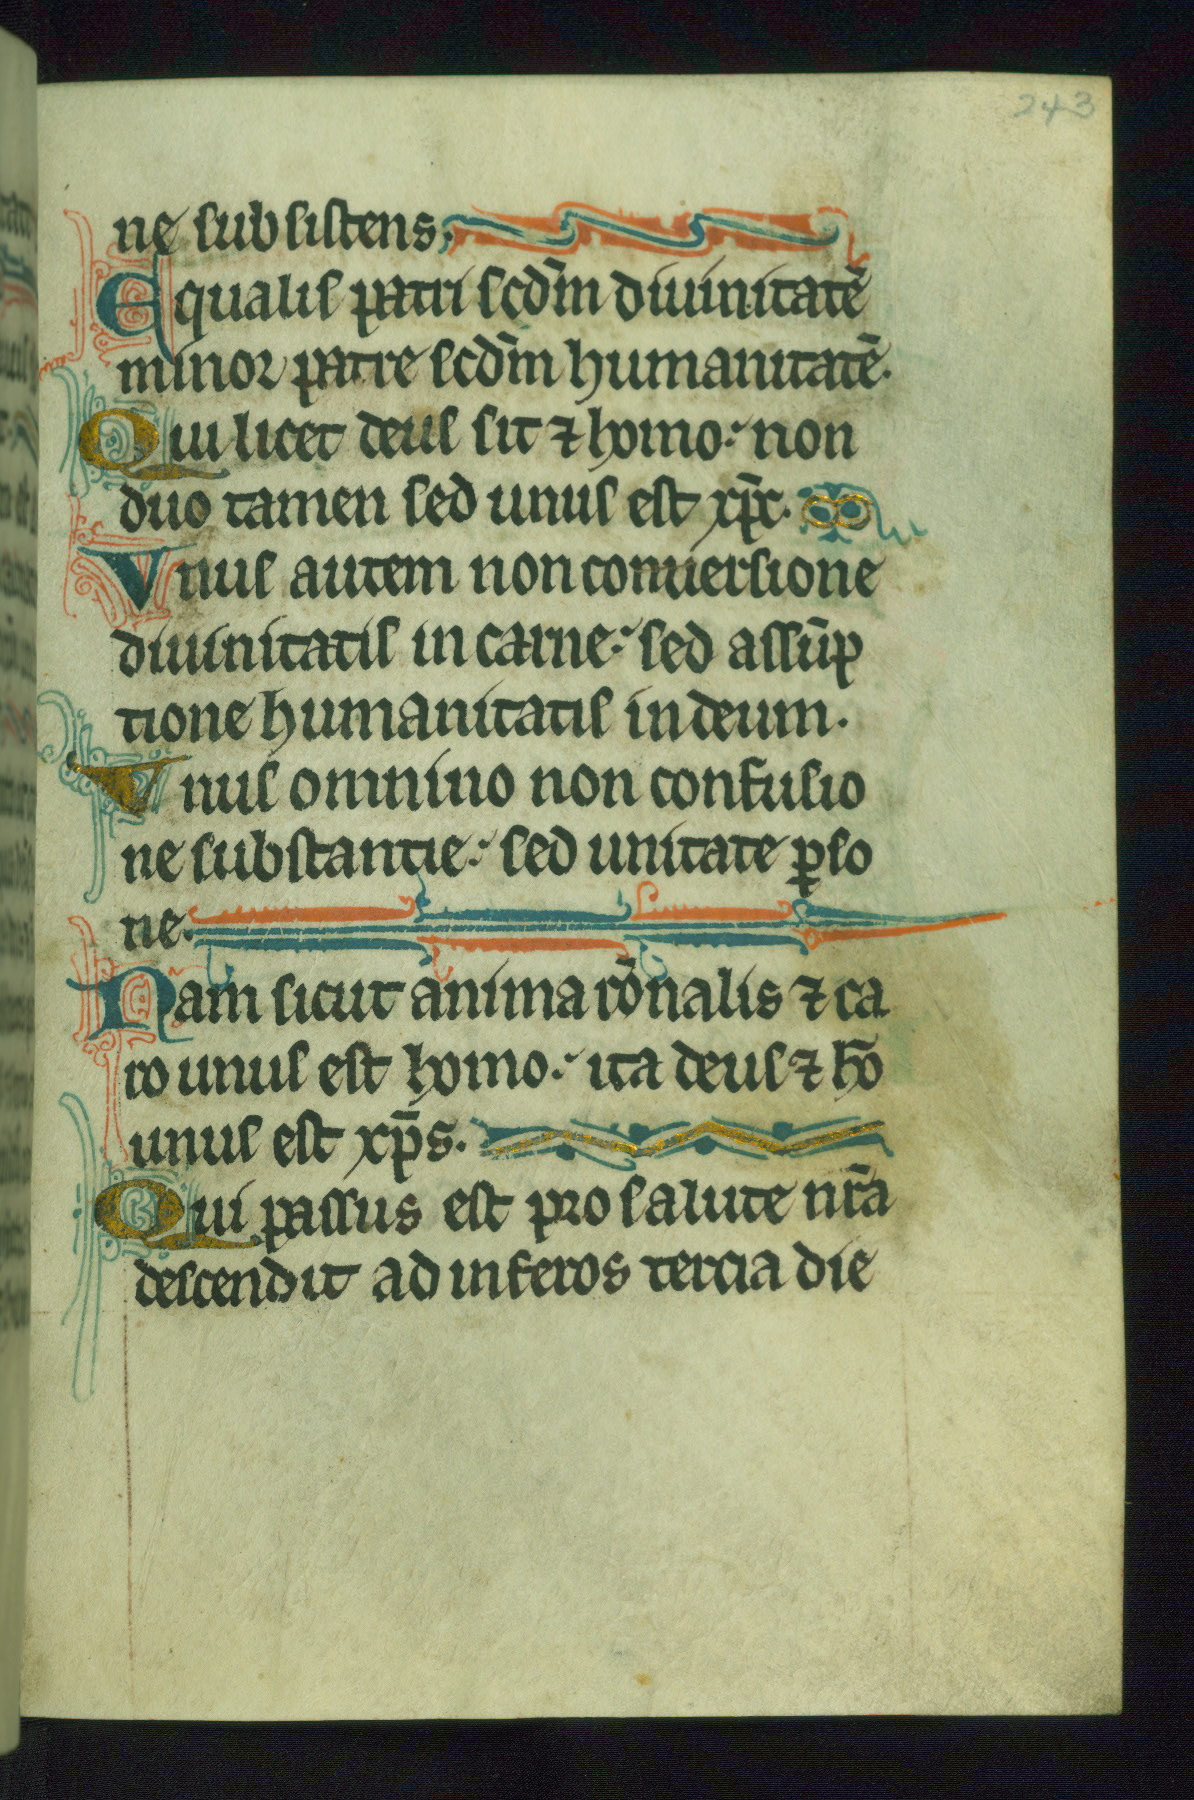 243
ne subsistens.
Equalis patri scd̄m diuinitatē
minor patre scd̄m humanitatē.
Qui licet deus sit ⁊ homo. non
duo tamen sed unus est xp̄c.
Vnus autem non conuersione
diuinitatis in carne. sed assūp
tione humanitatis in deum.
Vnus omnino non confusio
ne substantie. sed unitate ꝑso
ne.
Nam sicut anima rōnalis ⁊ ca
ro unus est homo. ita deus ⁊ hō
unus est xp̄s.
Qui passus est pro salute nr̄a
descendit ad inferos tercia die